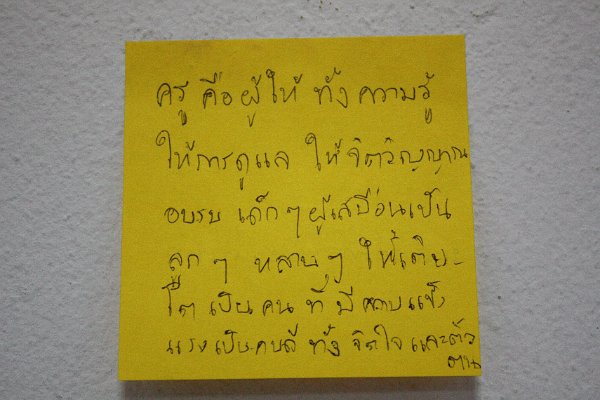 ครู คือผู้ให้ ทั้งความรู้
ให้การดูแล ให้จิตวิญญาณ
อบรม เด็กๆ ผู้เสมือนเป็น
ลูกๆ หลานๆ ให้เติบ
โตเป็นคนที่มีความแข็ง
แรงเป็นคนดี ทั้ง จิตใจ และตัว
ตน